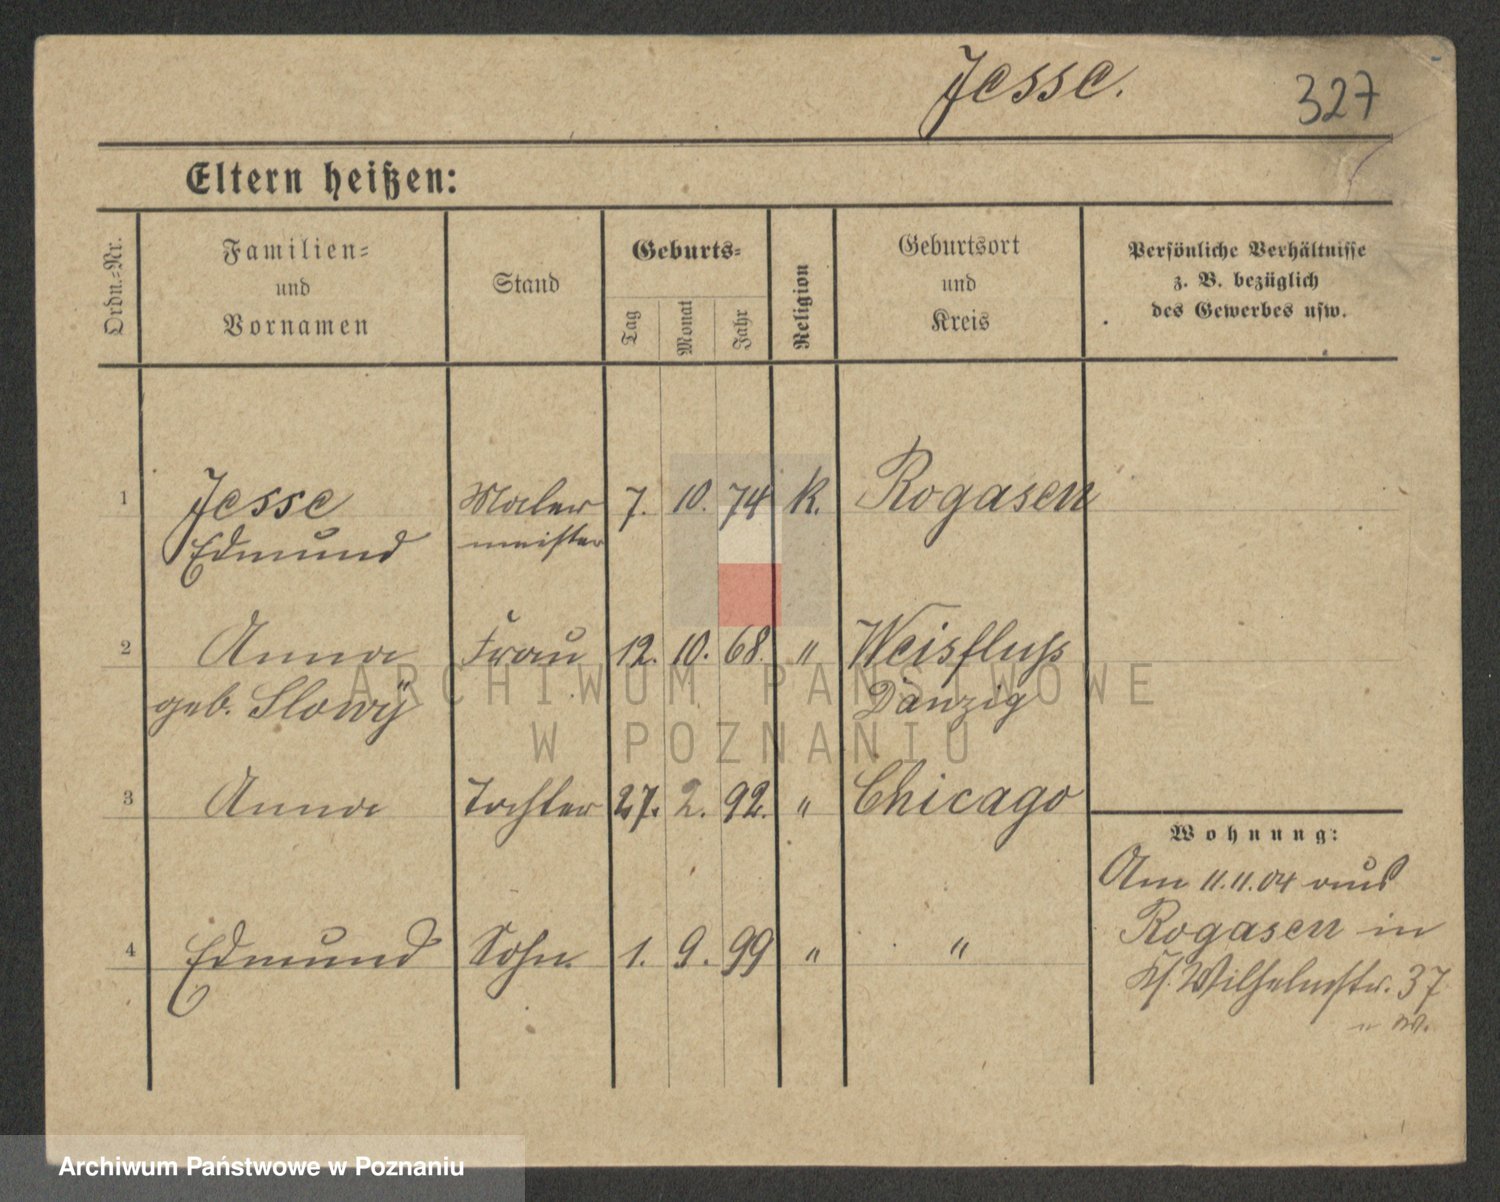 Jesse.
327
Eltern heißen:
Ordn.-Nr.
Familien-
und
Vornamen
Stand
Geburts-
Tag
Monat
Jahr
Religion
Geburtsort
und
Kreis
Persönliche Verhältnisse
z. B. bezüglich
des Gewerbes usw.
1 Jesse Maler 7. 10. 74 K. Rogasen
Edmund meister
2 Anna Frau 12. 10. 68. " Weisfluß
geb. Slowÿ Danzig
3 Anna Tochter 27. 2. 92. " Chicago
Wohnung:
Am 11.11.04 aus
Rogasen in
4 Edmund Sohn 1. 9. 99 " "
Wilhelmstr. 37
ARCHIWUM PAŃSTWOWE
W POZNANIU
Archiwum Państwowe w Poznaniu